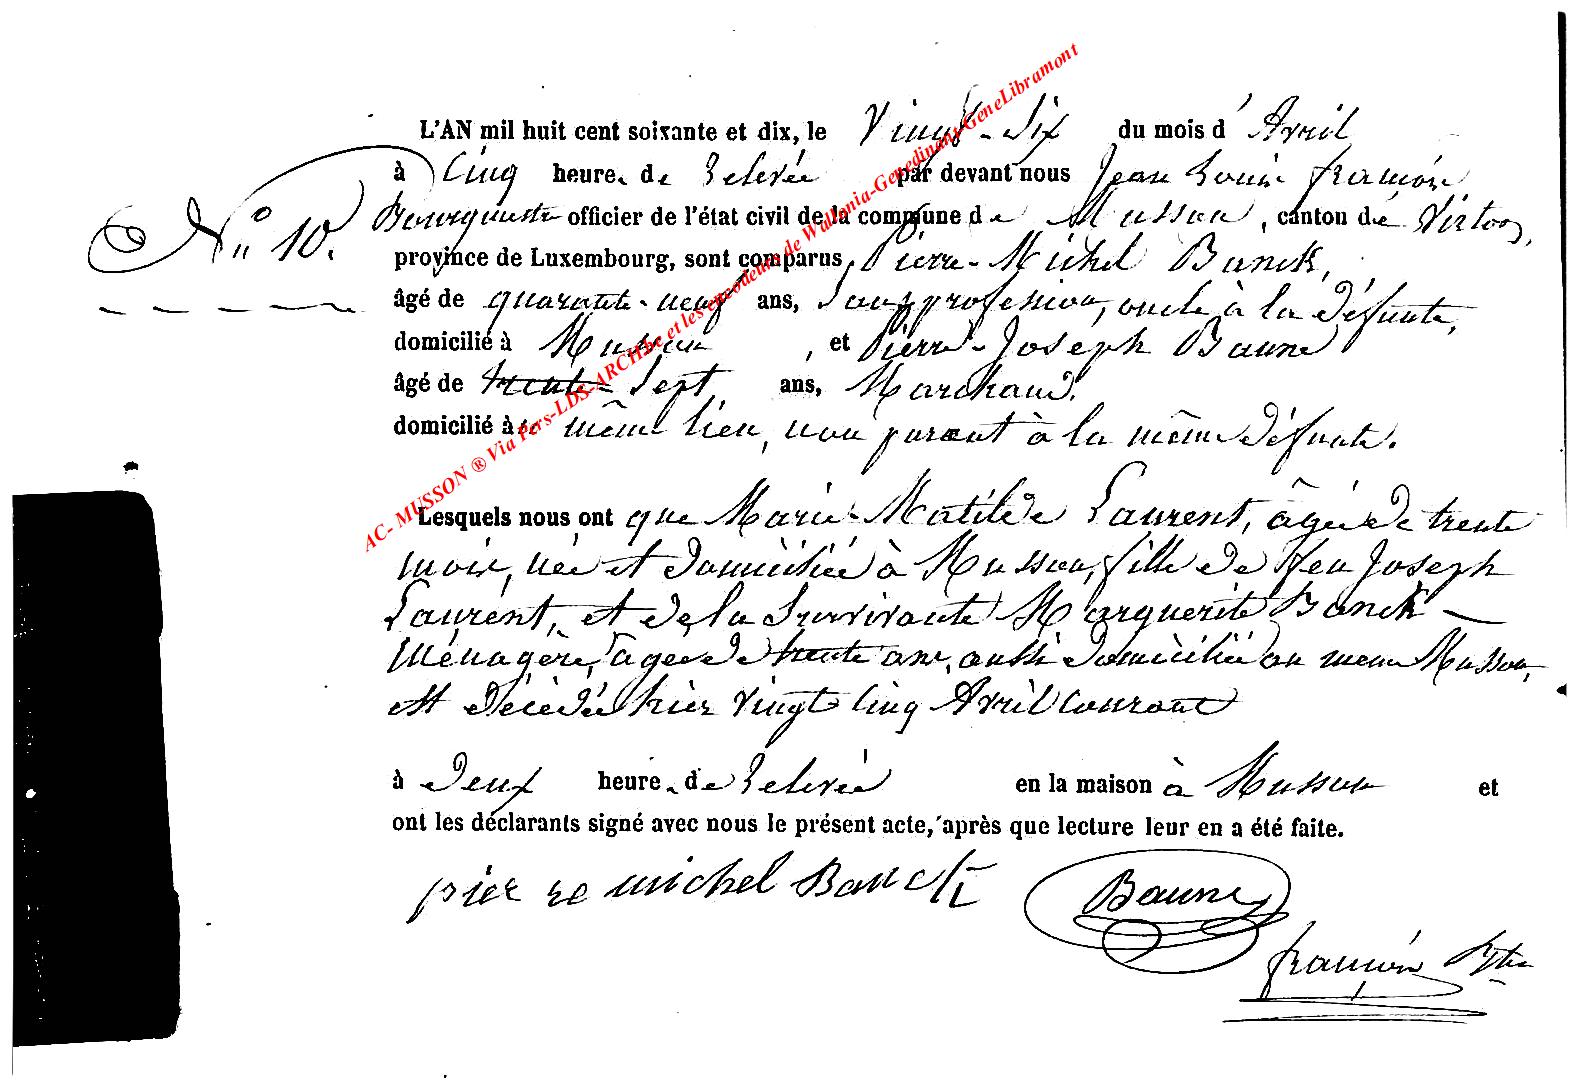 L'AN mil huit cent soixante et dix, le Vingt-Six du mois d'Avril
à Cinq heure de relevée par devant nous Jean Louis françois
N° 10.
Bourgmestre officier de l'état civil de la commune de Musson, canton de Virton,
province de Luxembourg, sont comparus Pierre-Michel Banck,
âgé de quarante-neuf ans, Sans profession, oncle à la défunte,
domicilié à Musson, et Pierre-Joseph Baune
âgé de trente-Sept ans, Marchand,
domicilié à même lieu, non parent à la même défunte.
Lesquels nous ont que Marie-Matilde Laurent, âgée de trente
mois, née et domiciliée à Musson, fille de feu Joseph
Laurent, et de la Survivante Marguerite Banck
Ménagère, âgée de trente ans, aussi domiciliée au meme Musson,
est décédée hier vingt cinq Avril courant
à deux heure de relevée en la maison à Musson et
ont les déclarants signé avec nous le présent acte, après que lecture leur en a été faite.
pierre michel Banck
Baune
françois Bgtre
AC- MUSSON ® Via Pers-LDS-ARCH.be et les encodeurs de Wallonia-Genedinant-GeneLibramont